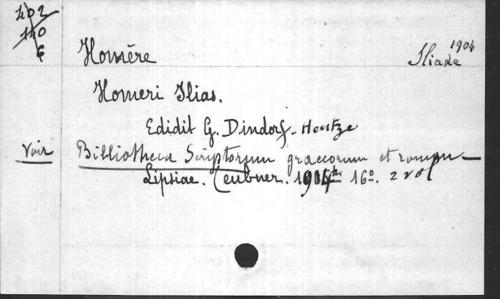 402
140
6
Homère
Iliade 1904
Homeri Ilias.
Edidit G. Dindorf-Hentze
Voir Bibliotheca Scriptorum graecorum et romano
Lipsiae. Teubner. 16º. 2 vol